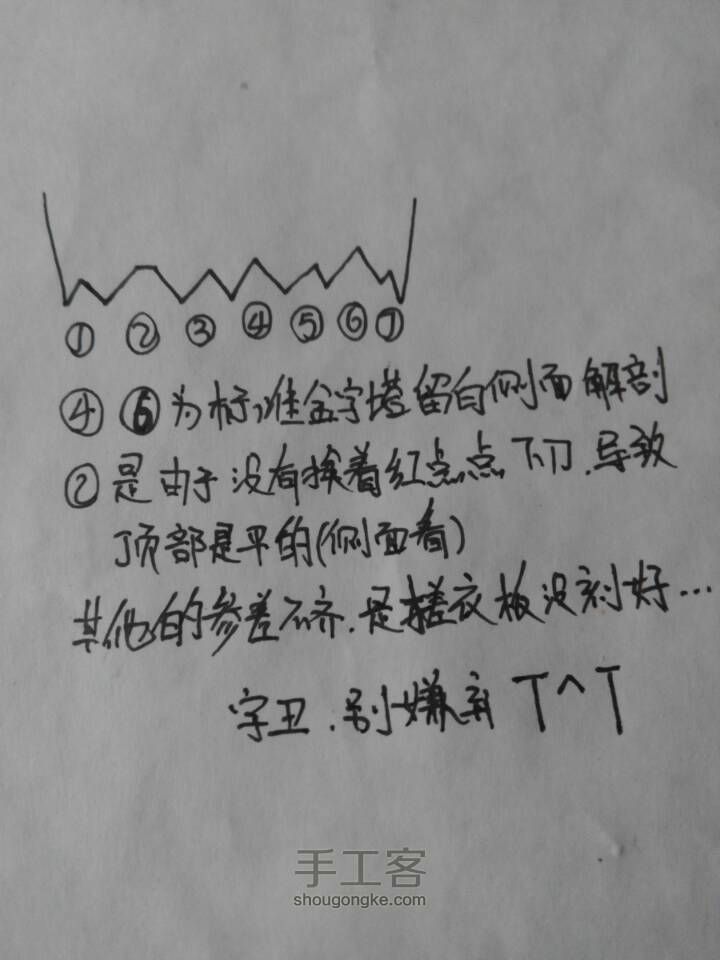 ①②③④⑤⑥⑦
④⑥为标准金字塔留白侧面解剖
②是由于没有挨着红点点下刀.导致
顶部是平的(侧面看)
其他的参差不齐.是搓衣板没刻好…
字丑.别嫌弃 T^T
手工客
shougongke.com